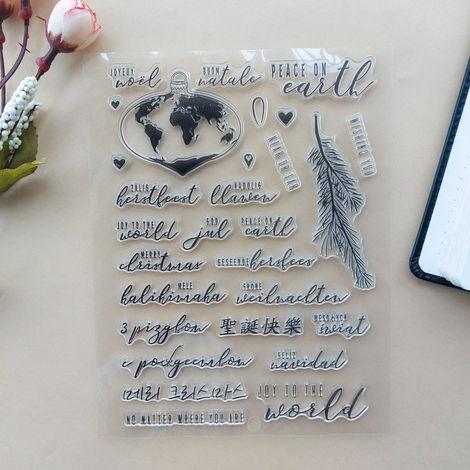 JOYEUX
noël
BUON
natale
PEACE ON
earth
WISHING YOU
ZALIG
kerstfeest
NADOLIG
llawen
JOY TO THE
world
GOD
jul
PEACE ON
earth
MERRY
christmas
GESEËNDE kersfees
MELE
kalikimaka
FROHE
weihnachten
З різдвом
聖誕快樂
WESOŁYCH
świąt
с рождеством
FELIZ
navidad
메리 크리스마스
JOY TO THE
world
NO MATTER WHERE YOU ARE